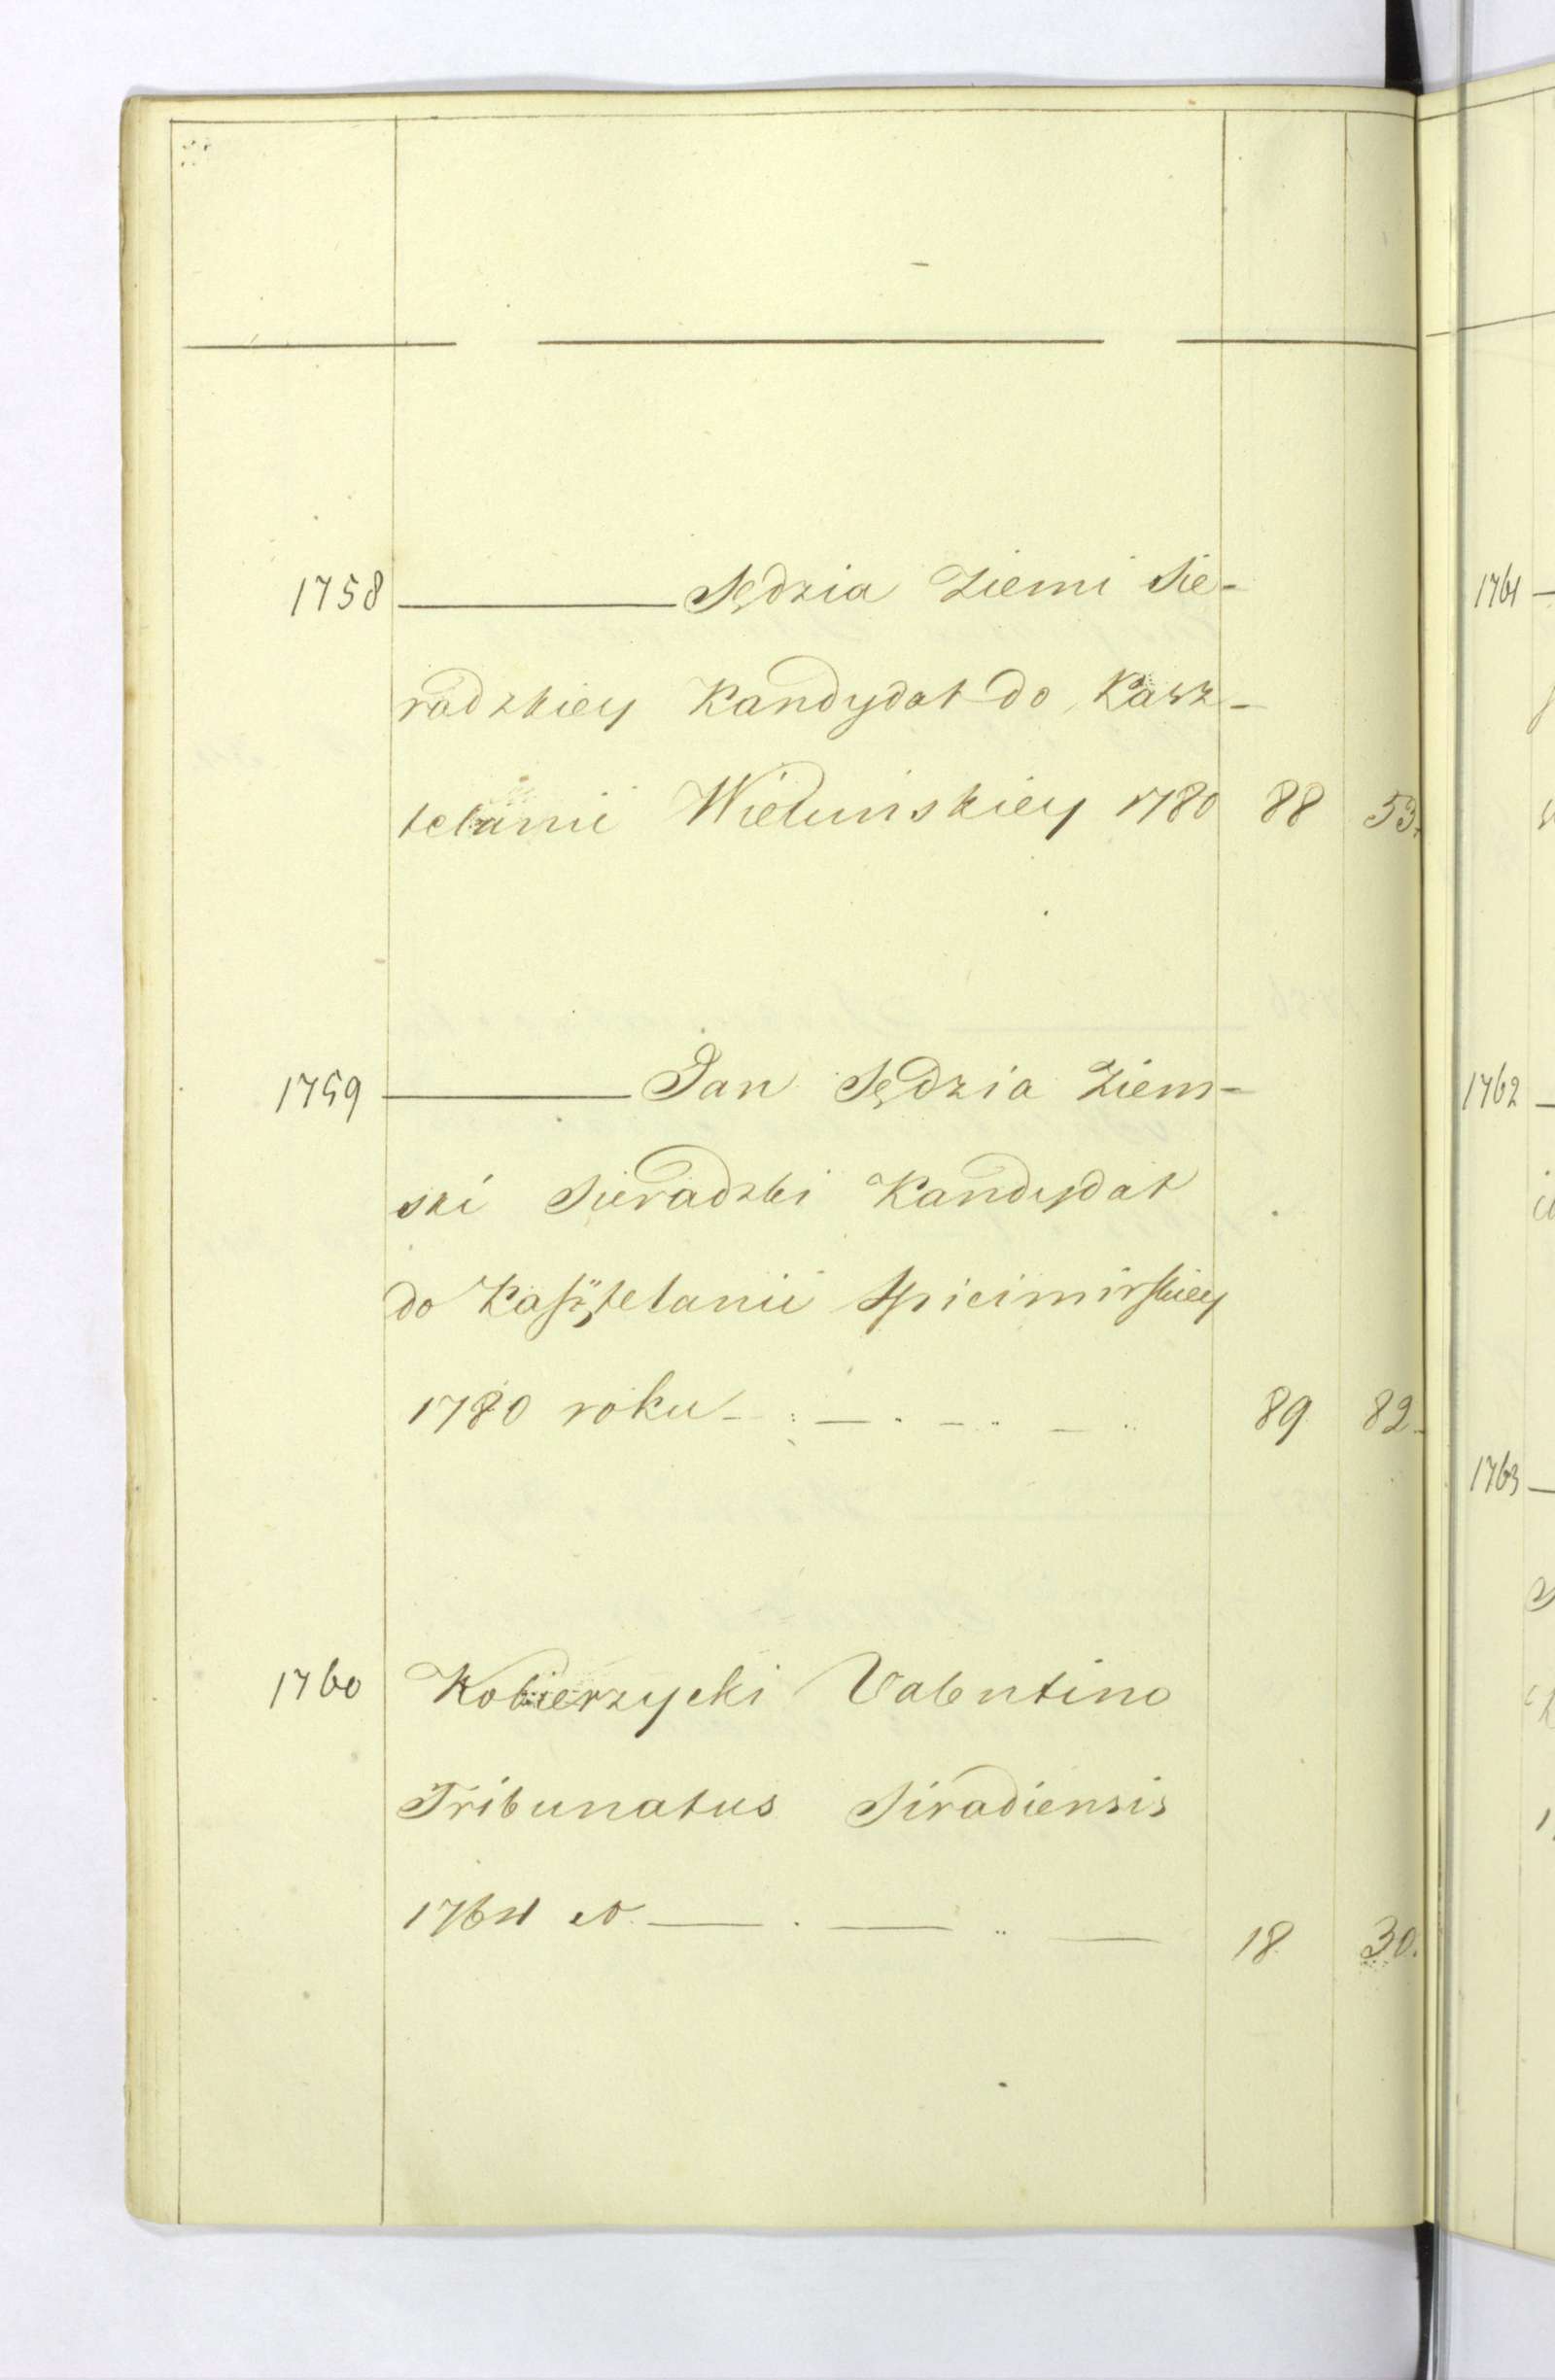 1758 ——— Sędzia Ziemi Sie-
radzkiey Kandydat do Kasz-
telanii Wieluńskiey 1780 88 53.
1759 ——— Jan Sędzia Ziem-
ski Sieradzki Kandydat
do Kasztelanii Spicimirskiey
1780 roku 89 82.
1760 Kobierzycki Valentino
Tribunatus Siradiensis
18 30.
1761
1762
1763